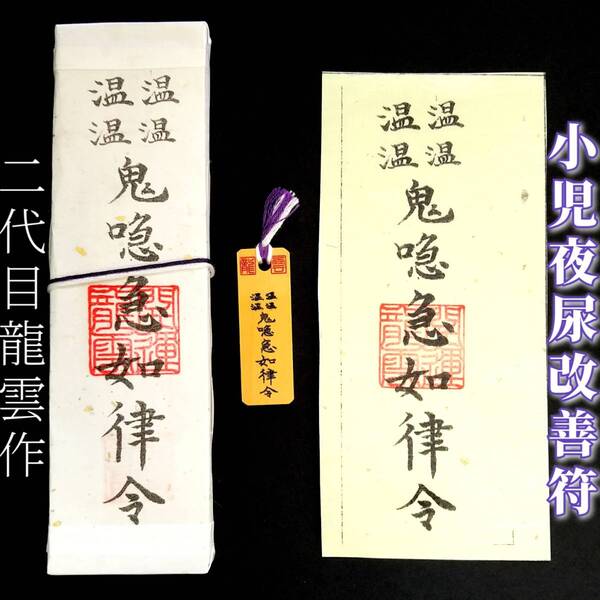 小児夜尿改善符
温温
温温
鬼喼急如律令
龍雲
温温
温温
鬼喼急如律令
温温
温温
鬼喼急如律令
二代目龍雲作